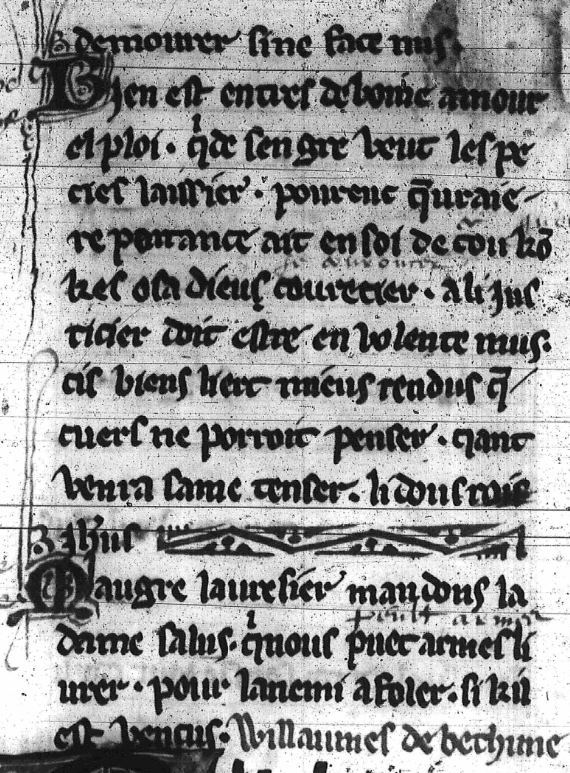 demourer sine face nus.
Bien est entres de boine amour
el ploi. q̍ de sen gre veut les pe
cies laissier. pourent q̄ uraie
repentance ait en soi de cou kō
kes osa dieus courecier. a li jus
ticier doit estre en volente nus.
cis biens liert mieus rendus q̄
cuers ne porroit penser. qant
venra same tenser. li dous rois
ihus
Maugre lauresier mandons la
dame salus. q̍ nous puet armes li
urer. pour lanemi afoler. si kil
est vencus. Willaumes de bethune